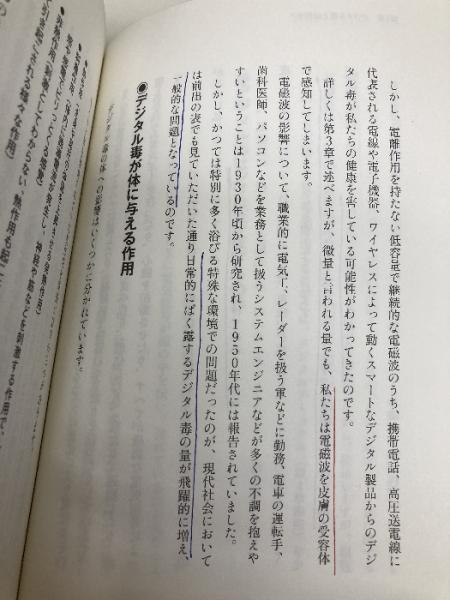 しかし、電離作用を持たない低容量で継続的な電磁波のうち、携帯電話、高圧送電線に
代表される電線や電子機器、ワイヤレスによって動くスマートなデジタル製品からのデジ
タル毒が私たちの健康を害している可能性がわかってきたのです。
詳しくは第3章で述べますが、微量と言われる量でも、私たちは電磁波を皮膚の受容体
で感知してしまいます。
電磁波の影響について、職業的に電気工、レーダーを扱う軍などに勤務、電車の運転手、
歯科医師、パソコンなどを業務として扱うシステムエンジニアなどが多くの不調を抱えや
すいということは1930年頃から研究され、1950年代には報告されていました。
しかし、かつては特別に多く浴びる特殊な環境での問題だったのが、現代社会において
は前出の表でも見ていただいた通り日常的にばく露するデジタル毒の量が飛躍的に増え、
一般的な問題となっているのです。
●デジタル毒が体に与える作用
デジタル毒の体への影響はいくつかに分かれています。
神経や筋などを刺激する作用で、